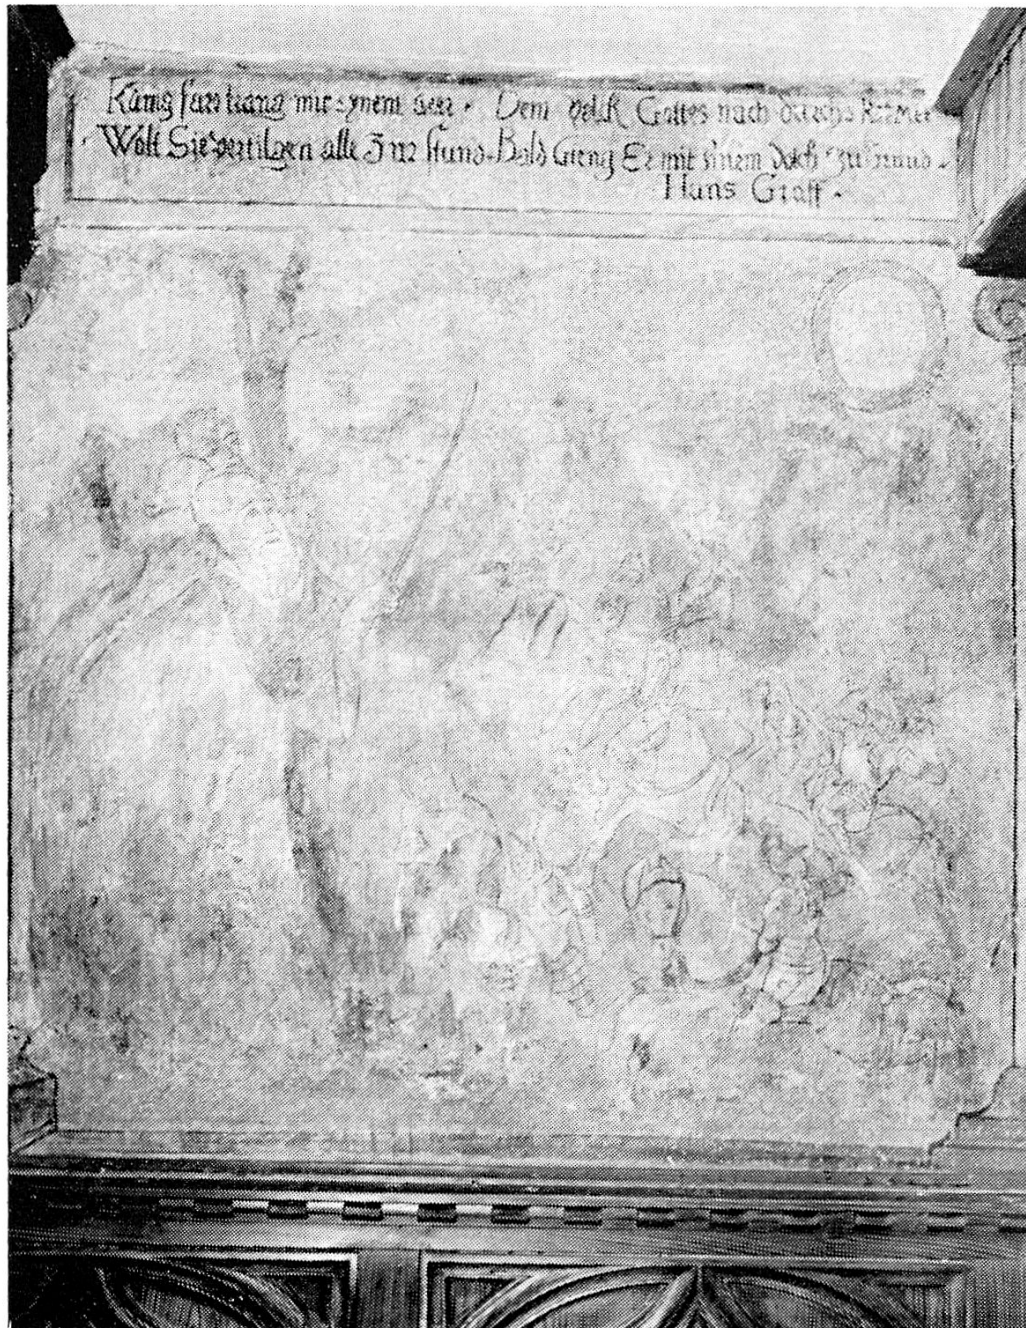 Künig sprang mit synem Dem Volck Gottes nach
Wolt Sie vertilgen alle Zur stund. Bald Gieng Er mit sinem Volck zu Grund.
Hans Graff.